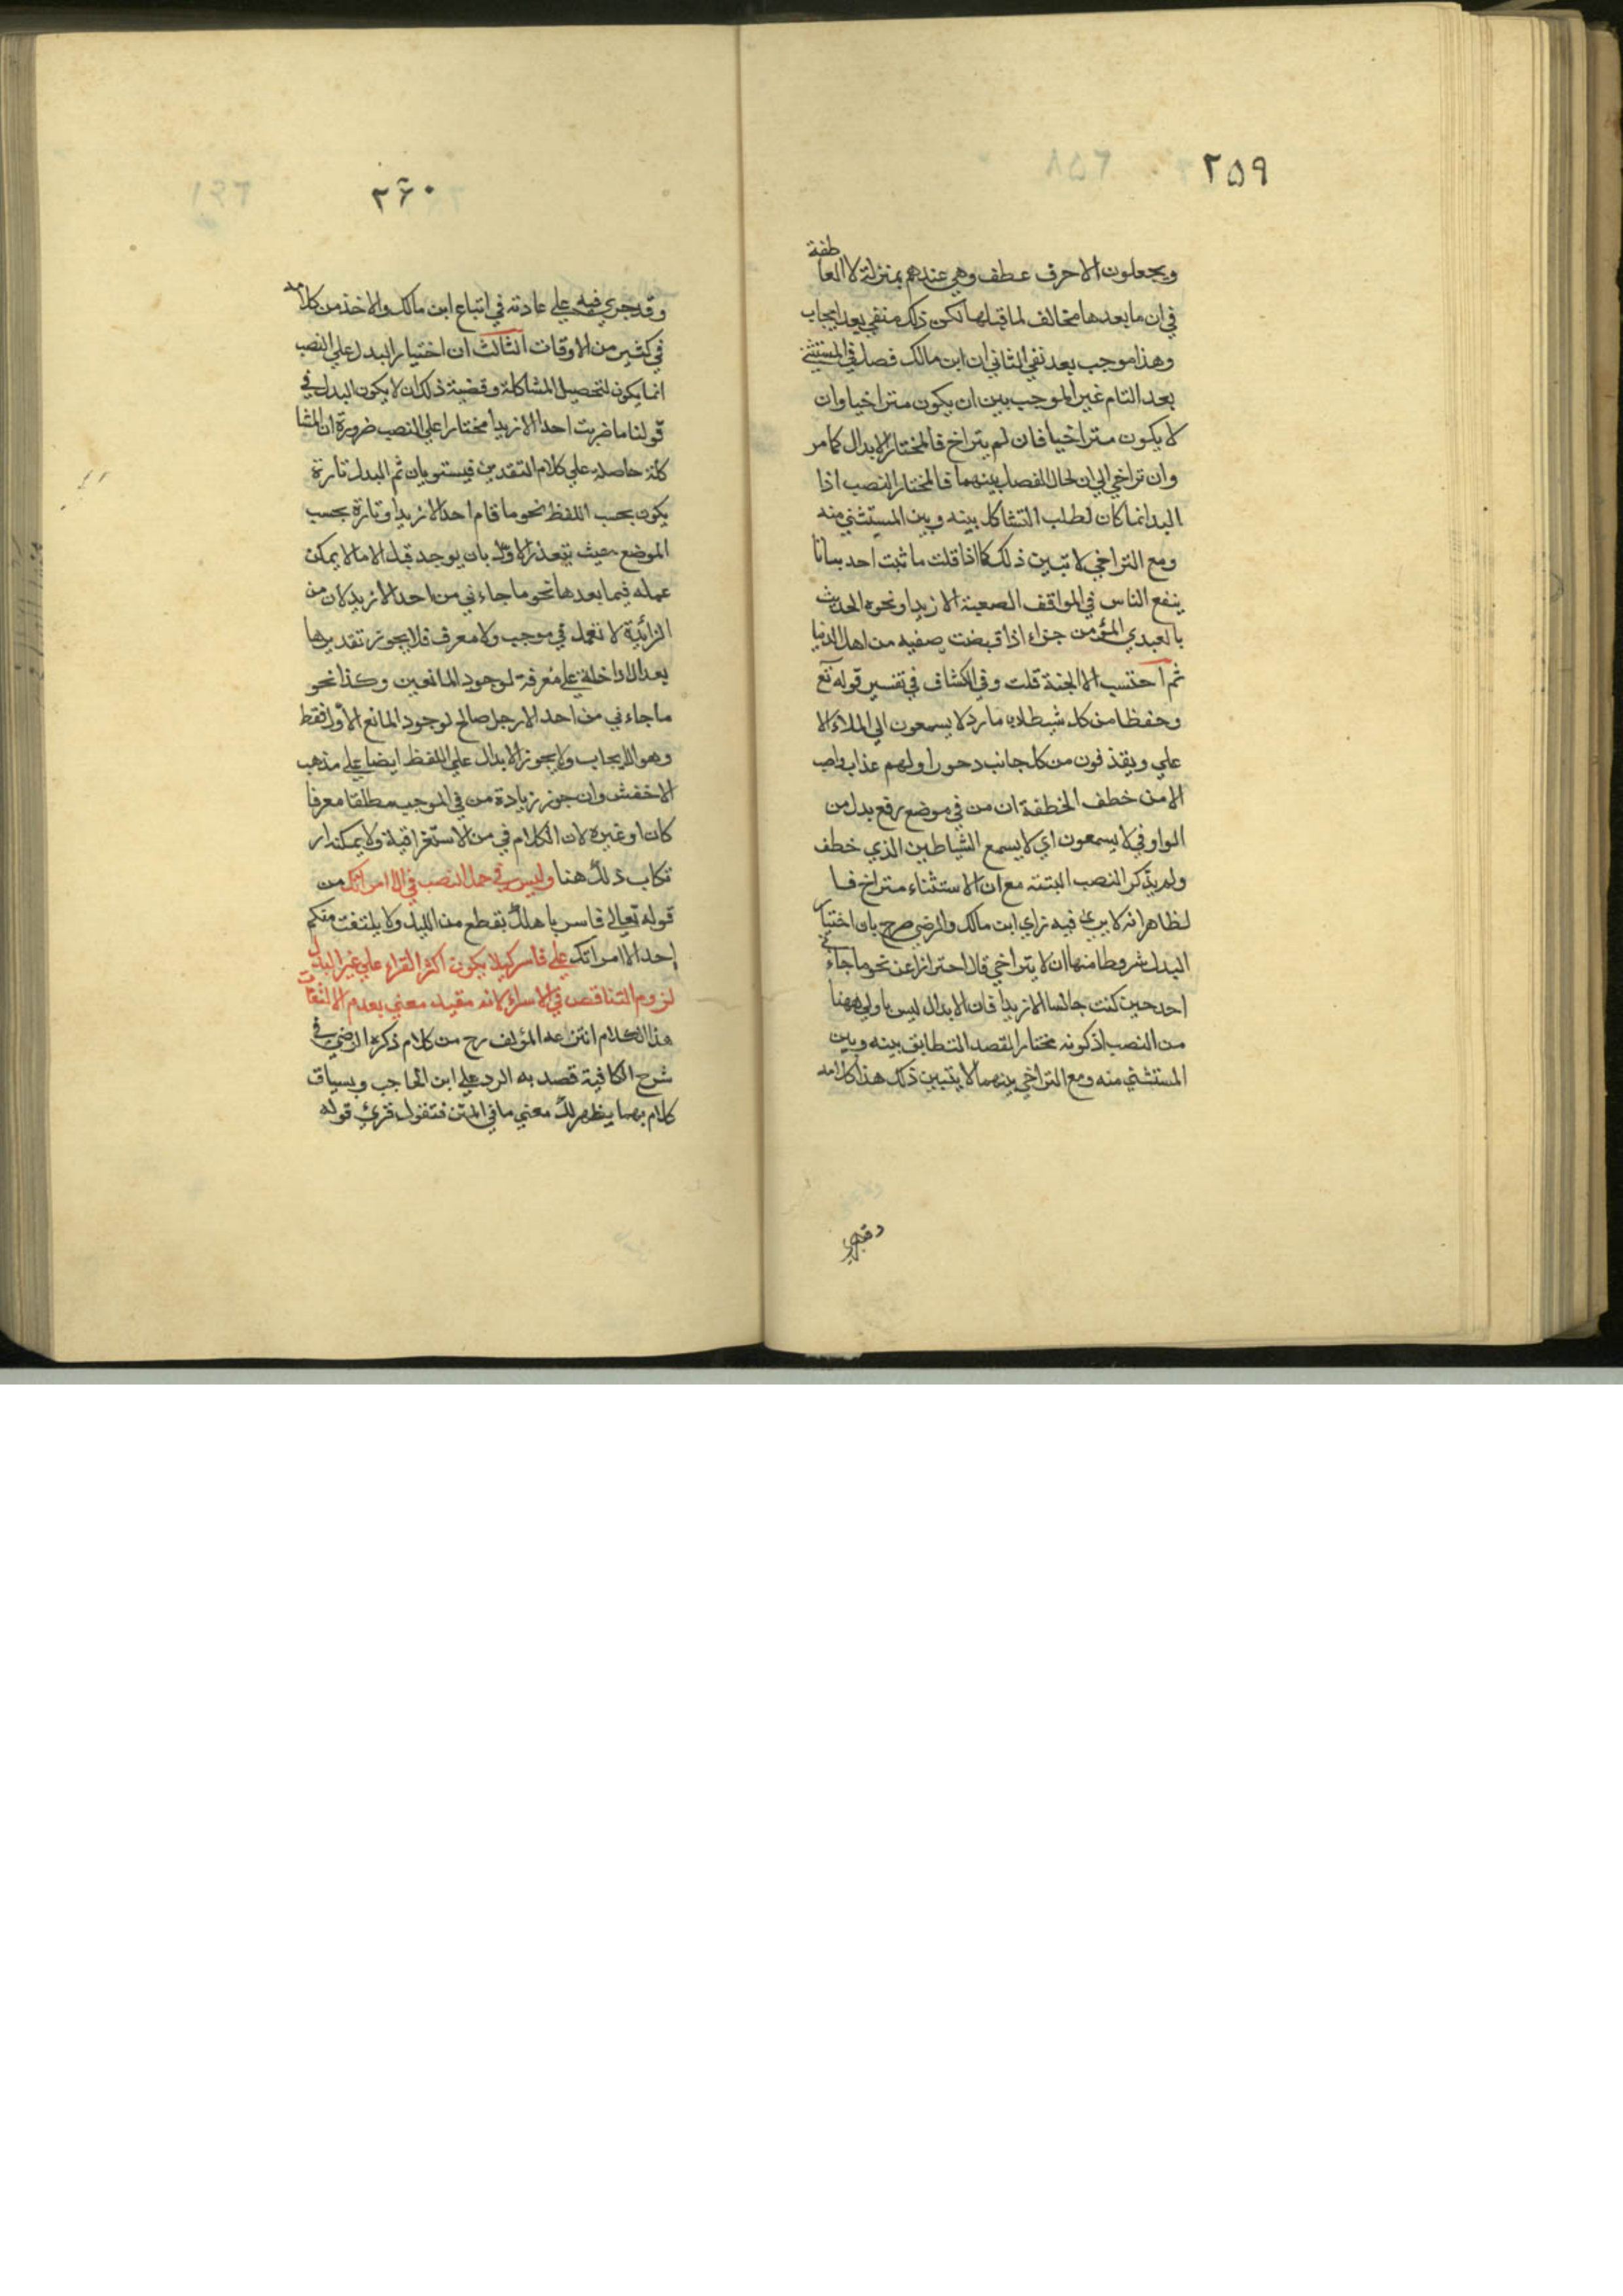 ٢٥٩
ويجعلون الا حرف عطف وهي عندهم بمنزلة لا العاطفة
في ان ما بعدها مخالف لما قبلها لكن ذلك منفي بعد ايجاب
وهذا موجب بعد نفي الثاني ان ابن مالك فصل في المستثنى
بعد التام غير الموجب بين ان يكون متراخيا وان
لا يكون متراخيا فان لم يتراخ فالمختار الابدال كما مر
وان تراخي الي ان لحال الفصل بينهما فالمختار النصب اذا
البدل انما كان لطلب التشاكل بينه وبين المستثني منه
ومع التراخي لا تبين ذلك كما اذا قلت ما ثبت احد بيانا
ينفع الناس في المواقف الصعبة الا زيدا ونحوه الحديث
بالعبدي المؤمن جزاء اذا قبضت صفيه من اهل الدنيا
ثم احتسب الا الجنة قلت وفي الكشاف في تفسير قوله تع
وحفظا من كل شيطان مارد لا يسمعون الي الملاء الا
علي ويقذفون من كل جانب دحورا ولهم عذاب واصب
الا من خطف الخطفة ان من في موضع رفع بدل من
الواو في لا يسمعون اي لا يسمع الشياطين الذي خطف
ولم يذكر النصب البتته مع ان الاستثناء متراخ فا
لظاهر انه لا يرى فيه راي ابن مالك والرضي صرح بان اختيار
البدل شروطا منها ان لا يتراخي قال احترازا عن نحو ما جاءني
احد حين كنت جالسا الا زيدا فان الابدال ليس باولي ههنا
من النصب اذ كونه مختارا لقصد التطابق بينه وبين
المستثني منه ومع التراخي بينهما لا يتبين ذلك هذا كلامه
وقد جري
٢۶٠
وقد جري فيه علي عادته في اتباع ابن مالك والاخذ من كلامه
في كثير من الاوقات الثالث ان اختيار البدل علي النصب
انما يكون لتحصيل المشاكلة وقضية ذلك ان لا يكون البدل في
قولنا ما ضربت احدا الا زيدا مختارا علي النصب ضرورة ان المشا
كلة حاصلة علي كلام التقديرين فيستويان ثم البدل تارة
يكون بحسب اللفظ نحو ما قام احد الا زيدا وتارة بحسب
الموضع حيث يتعذر الاول بان يوجد قبل الا ما لا يمكن
عمله فيما بعدها نحو ما جاءني من احد الا زيد لان من
الزائدة لا تعمل في موجب ولا معرف فلا يجوز تقديرها
بعد الا داخلة علي معرفة لوجود المانعين وكذا نحو
ما جاءني من احد الا رجل صالح لوجود المانع الاول فقط
وهو الايجاب ولا يجوز الابدال علي اللفظ ايضا علي مذهب
الاخفش وان جوز زيادة من في الموجب مطلقا معرفا
كان او غيره لان الكلام في من الاستغراقية ولا يمكن ار
تكاب ذلك هنا وليس في حمل النصب في الا امراتك من
قوله تعالي فاسر باهلك بقطع من الليل ولا يلتفت منكم
احد الا امراتك علي فاسر كيلا يكون اكثر القراء علي غير البدل
لزوم التناقض في الاسراء لانه مقيد معني بعدم الالتفات
هذا الكلام انتزعه المؤلف رح من كلام ذكره الرضي في
شرح الكافية قصد به الرد علي ابن الحاجب وبسياق
كلام بهما يظهر لك معني ما في المتن فتقول قرئ قوله